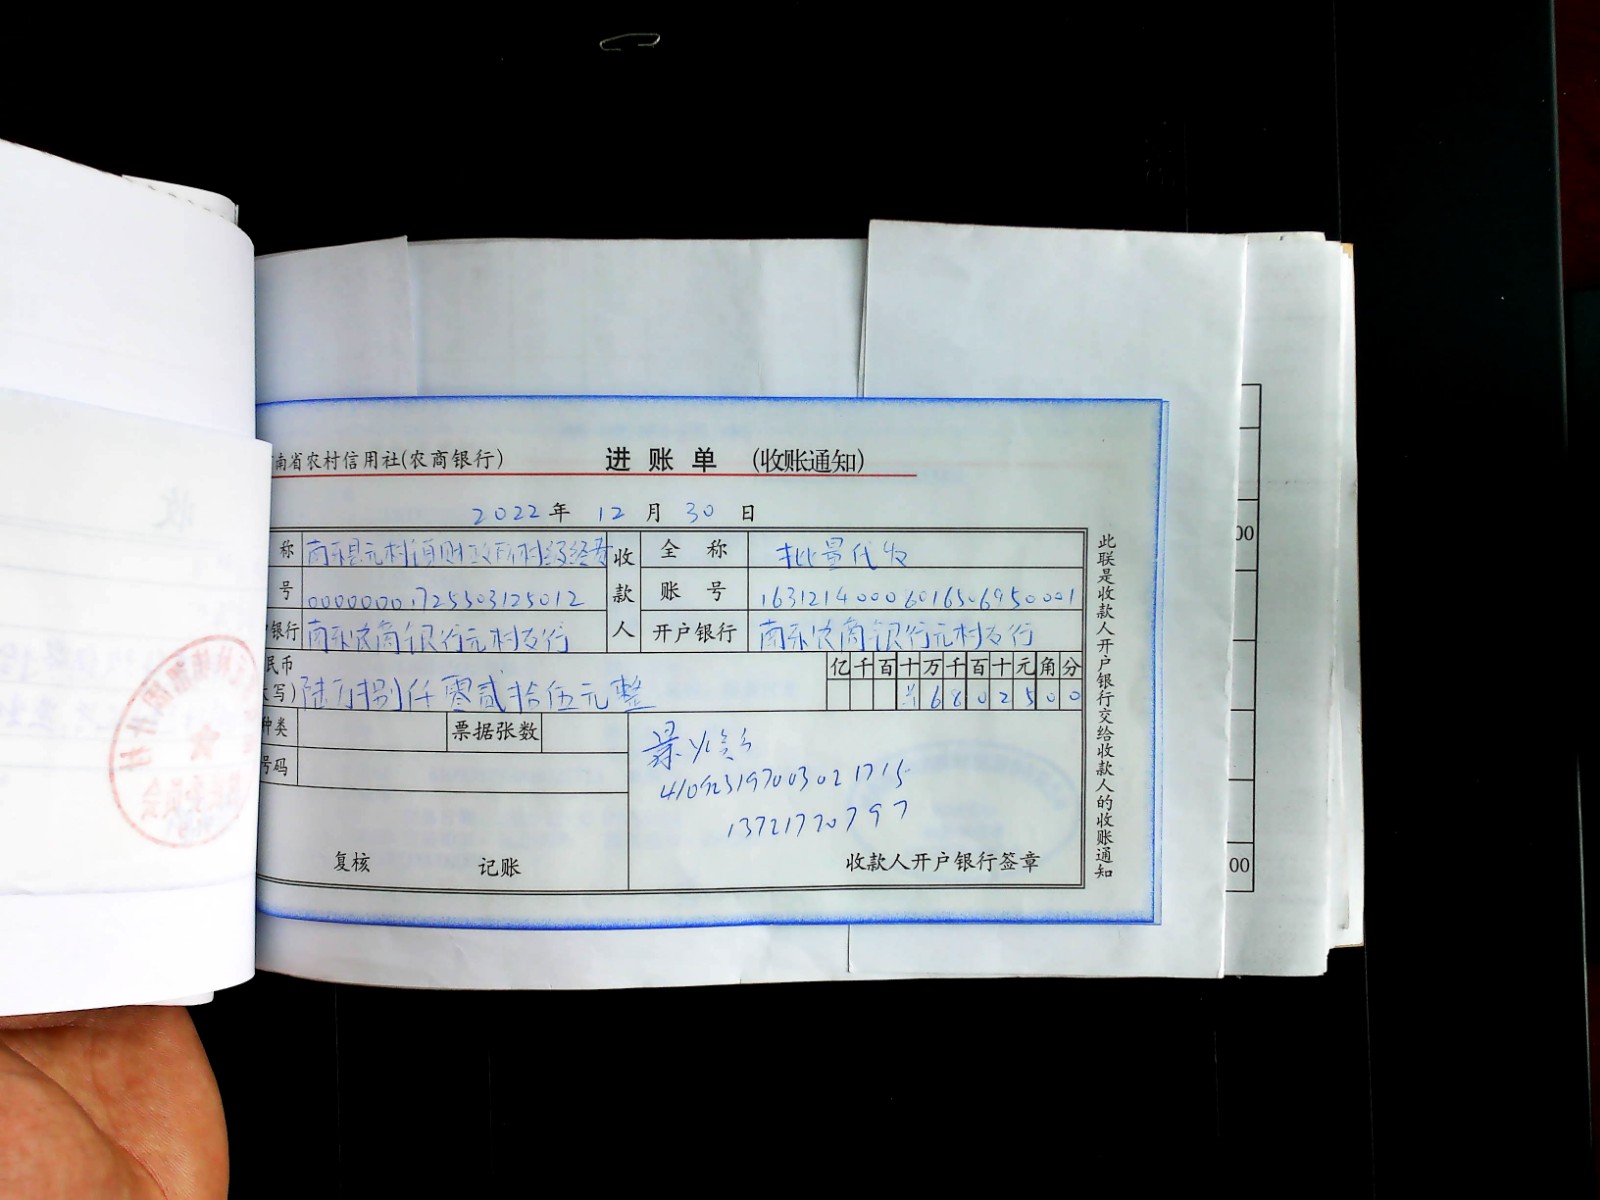 南省农村信用社(农商银行) 进 账 单 (收账通知)
2022年 12月 30日
称 南乐县元村镇财政所村级经费 收 全 称 批量代发
号 00000001725503125012 款 账 号 16312140006016506950001
银行 南乐农商银行元村支行 人 开户银行 南乐农商银行元村支行
民币 亿 千 百 十 万 千 百 十 元 角 分
写) 陆万捌仟零贰拾伍元整 6 8 0 2 5 0 0
种类 票据张数
号码
410923197003021715
13721770797
复核 记账 收款人开户银行签章
此联是收款人开户银行交给收款人的收账通知
00
00